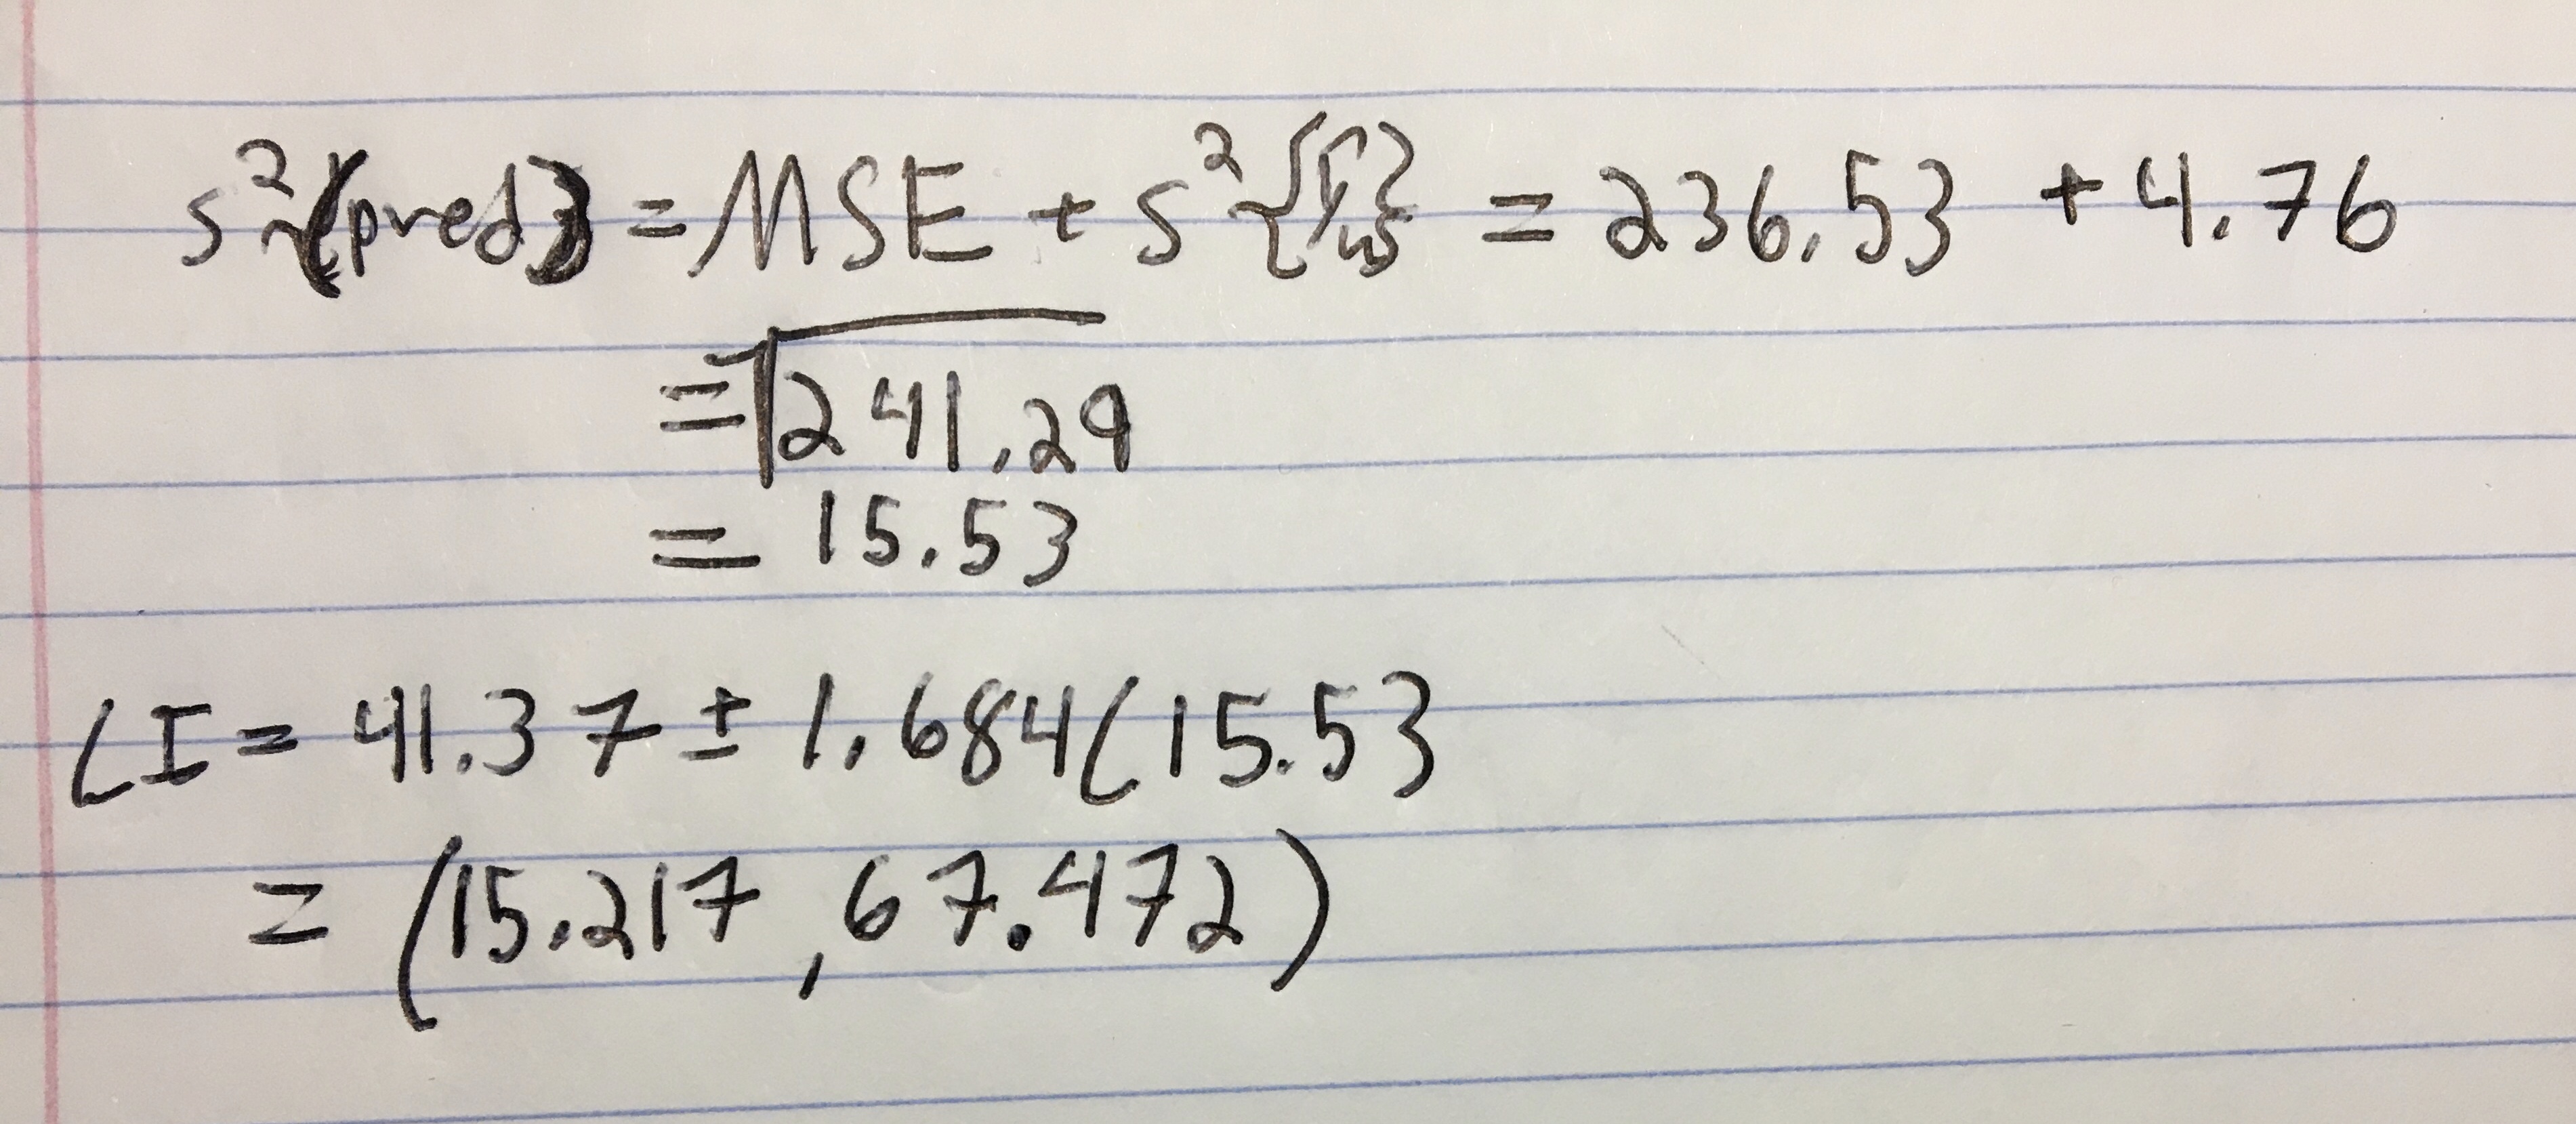 s²{pred} = MSE + s²{Ŷh} = 236.53 + 4.76
= √241.29
= 15.53
CI = 41.37 ± 1.684(15.53
= (15.217, 67.472)